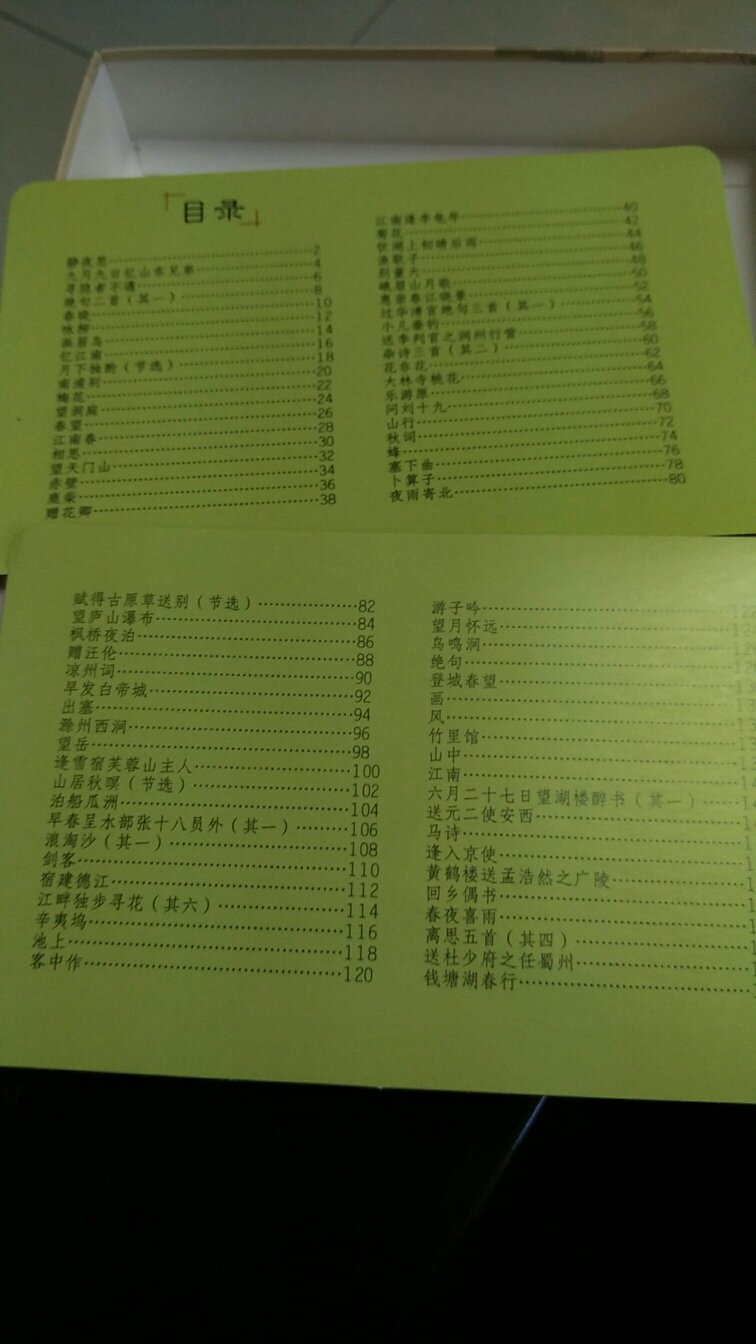 目录
静夜思……2
九月九日忆山东兄弟……4
寻隐者不遇……6
绝句二首（其一）……8
春晓……10
咏柳……12
画眉鸟……14
忆江南……16
月下独酌（节选）……18
南浦别……20
梅花……22
望洞庭……24
春望……26
江南春……28
相思……30
望天门山……32
赤壁……34
鹿柴……36
赠花卿……38
江南逢李龟年……40
菊花……42
饮湖上初晴后雨……44
渔歌子……46
别董大……48
峨眉山月歌……50
惠崇春江晓景……52
过华清宫绝句三首（其一）……54
小儿垂钓……56
送李判官之润州行营……58
杂诗三首（其二）……60
花非花……62
大林寺桃花……64
乐游原……66
问刘十九……68
山行……70
秋词……72
蜂……74
塞下曲……76
卜算子……78
夜雨寄北……80
赋得古原草送别（节选）……82
望庐山瀑布……84
枫桥夜泊……86
赠汪伦……88
凉州词……90
早发白帝城……92
出塞……94
滁州西涧……96
望岳……98
逢雪宿芙蓉山主人……100
山居秋暝（节选）……102
泊船瓜洲……104
早春呈水部张十八员外（其一）……106
浪淘沙（其一）……108
剑客……110
宿建德江……112
江畔独步寻花（其六）……114
辛夷坞……116
池上……118
客中作……120
游子吟……
望月怀远……
鸟鸣涧……
绝句……
登城春望……
画……
风……
竹里馆……
山中……
江南……
六月二十七日望湖楼醉书（其一）……
送元二使安西……
马诗……
逢入京使……
黄鹤楼送孟浩然之广陵……
回乡偶书……
春夜喜雨……
离思五首（其四）……
送杜少府之任蜀州……
钱塘湖春行……